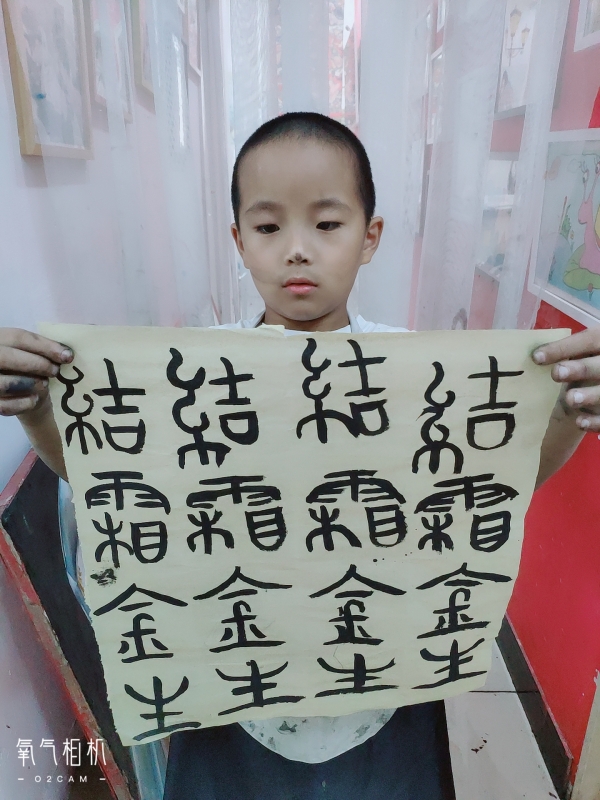 結霜金生
結霜金生
結霜金生
結霜金生
氧气相机
- O2CAM -